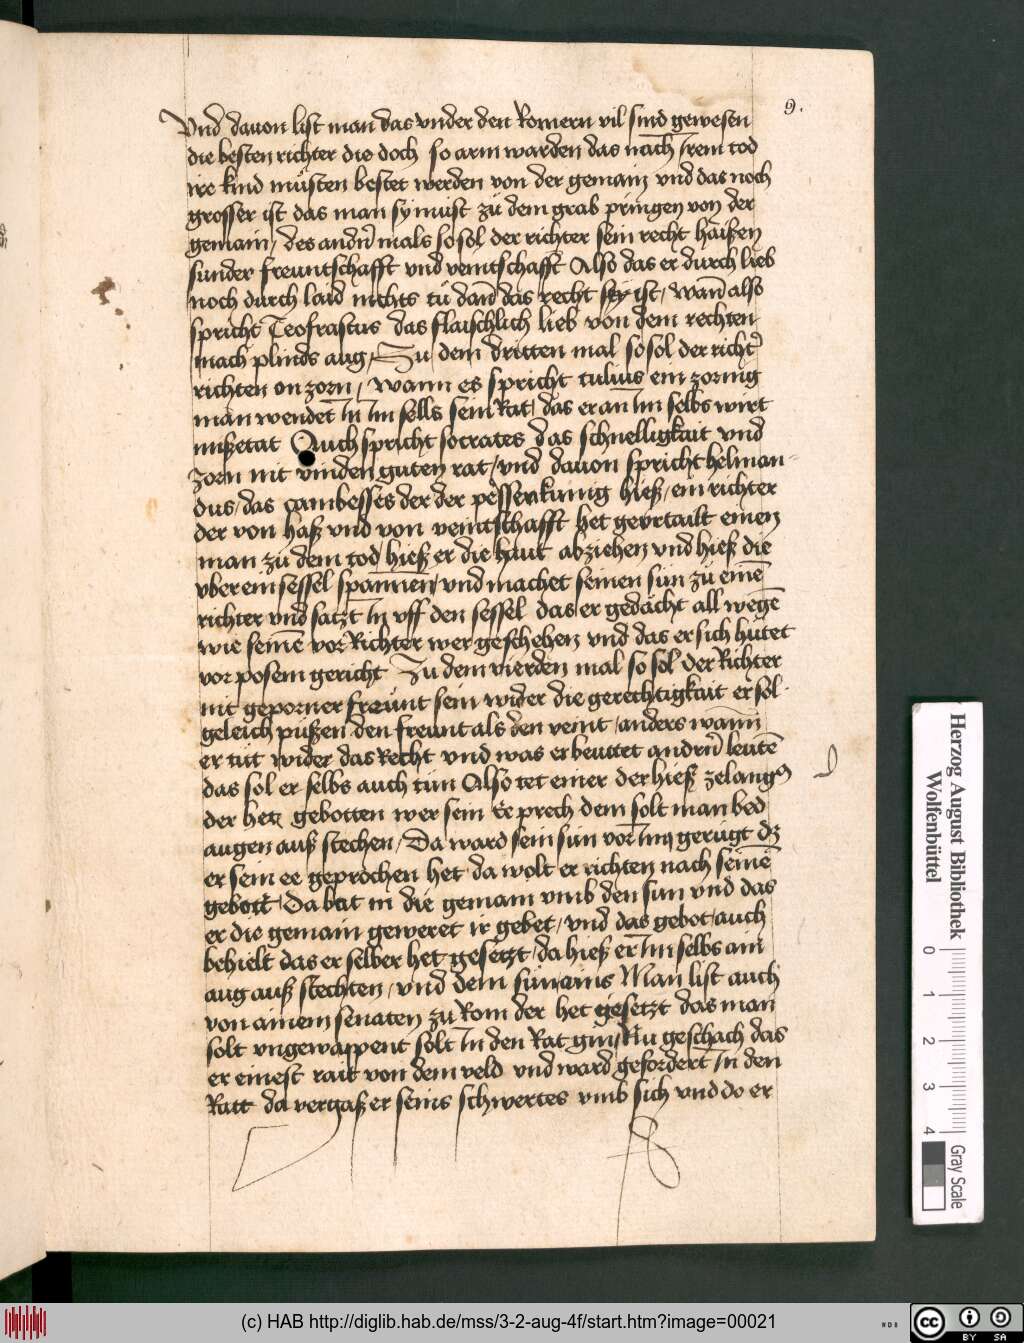 9.
Vnd dauon list man das vnder den Romern vil sind gewesen
die besten richter die doch so arm warden das nach irem tod
ire kind müsten bestet werden von der gemain vnd das noch
grosser ist das man sy must zü dem grab pringen von der
gemain / des andrn mals so sol der richter sein recht haissen
sunder freuntschafft vnd veintschafft Also das er durch lieb
noch durch laid nichts tü dann das recht ist / wann also
spricht Teofrastus das flaischlich lieb von dem rechten
mach plinds aug / Zu dem dritten mal so sol der richter
richten on zorn / wann es spricht tulius ein zornig
man wendet in im selbs sein Rat / das er an im selbs wirt
missetat Auch spricht socrates das schnelligkait vnd
zorn nit vinden guten rat / vnd dauon spricht helman-
dus / das cambesses der der pessen kunig hiess / ein richter
der von hass vnd von veintschafft het geurtailt einen
man zü dem tod / hiess er die haut abziehen vnd hiess die
vber ein sessel spannen / vnd machet seinen sun zü eine
richter vnd satzt in vff den sessel das er gedächt all wege
wie seine vor Richter wer geschehen vnd das er sich hütet
vor posem gericht Zu dem vierden mal so sol der Richter
nit geporner freunt sein wider die gerechtigkait er sol
geleich püssen den freunt als den veint / anders wann
er tüt wider das Recht vnd was er beuttet andrn leute
das sol er selbs auch tün Also tet einer der hiess zelangus
der het gebotten wer sein Ee prech dem solt man bed
augen auss stechen / Da ward sein sun vor im gerügt dz
er sein ee geprochen het da wolt er richten nach seine
gebott / Da bat in die gemain vmb den sun vnd das
er die gemain geweret ir gebet / vnd das gebot auch
behielt das er selber het gesetzt / da hiess er im selbs ain
aug auss stechten / vnd dem sun ains Man list auch
von ainem senaten zu Rom der het gesetzt das man
solt vngewappent solt in den Rat gin / Nu geschach das
er einest rait von dem veld vnd ward gefordert in den
Ratt da vergass er seins schwertes vmb sich vnd do er
Herzog August Bibliothek
Wolfenbüttel
0 1 2 3 4
Gray Scale
(c) HAB http://diglib.hab.de/mss/3-2-aug-4f/start.htm?image=00021
WDB
cc BY SA